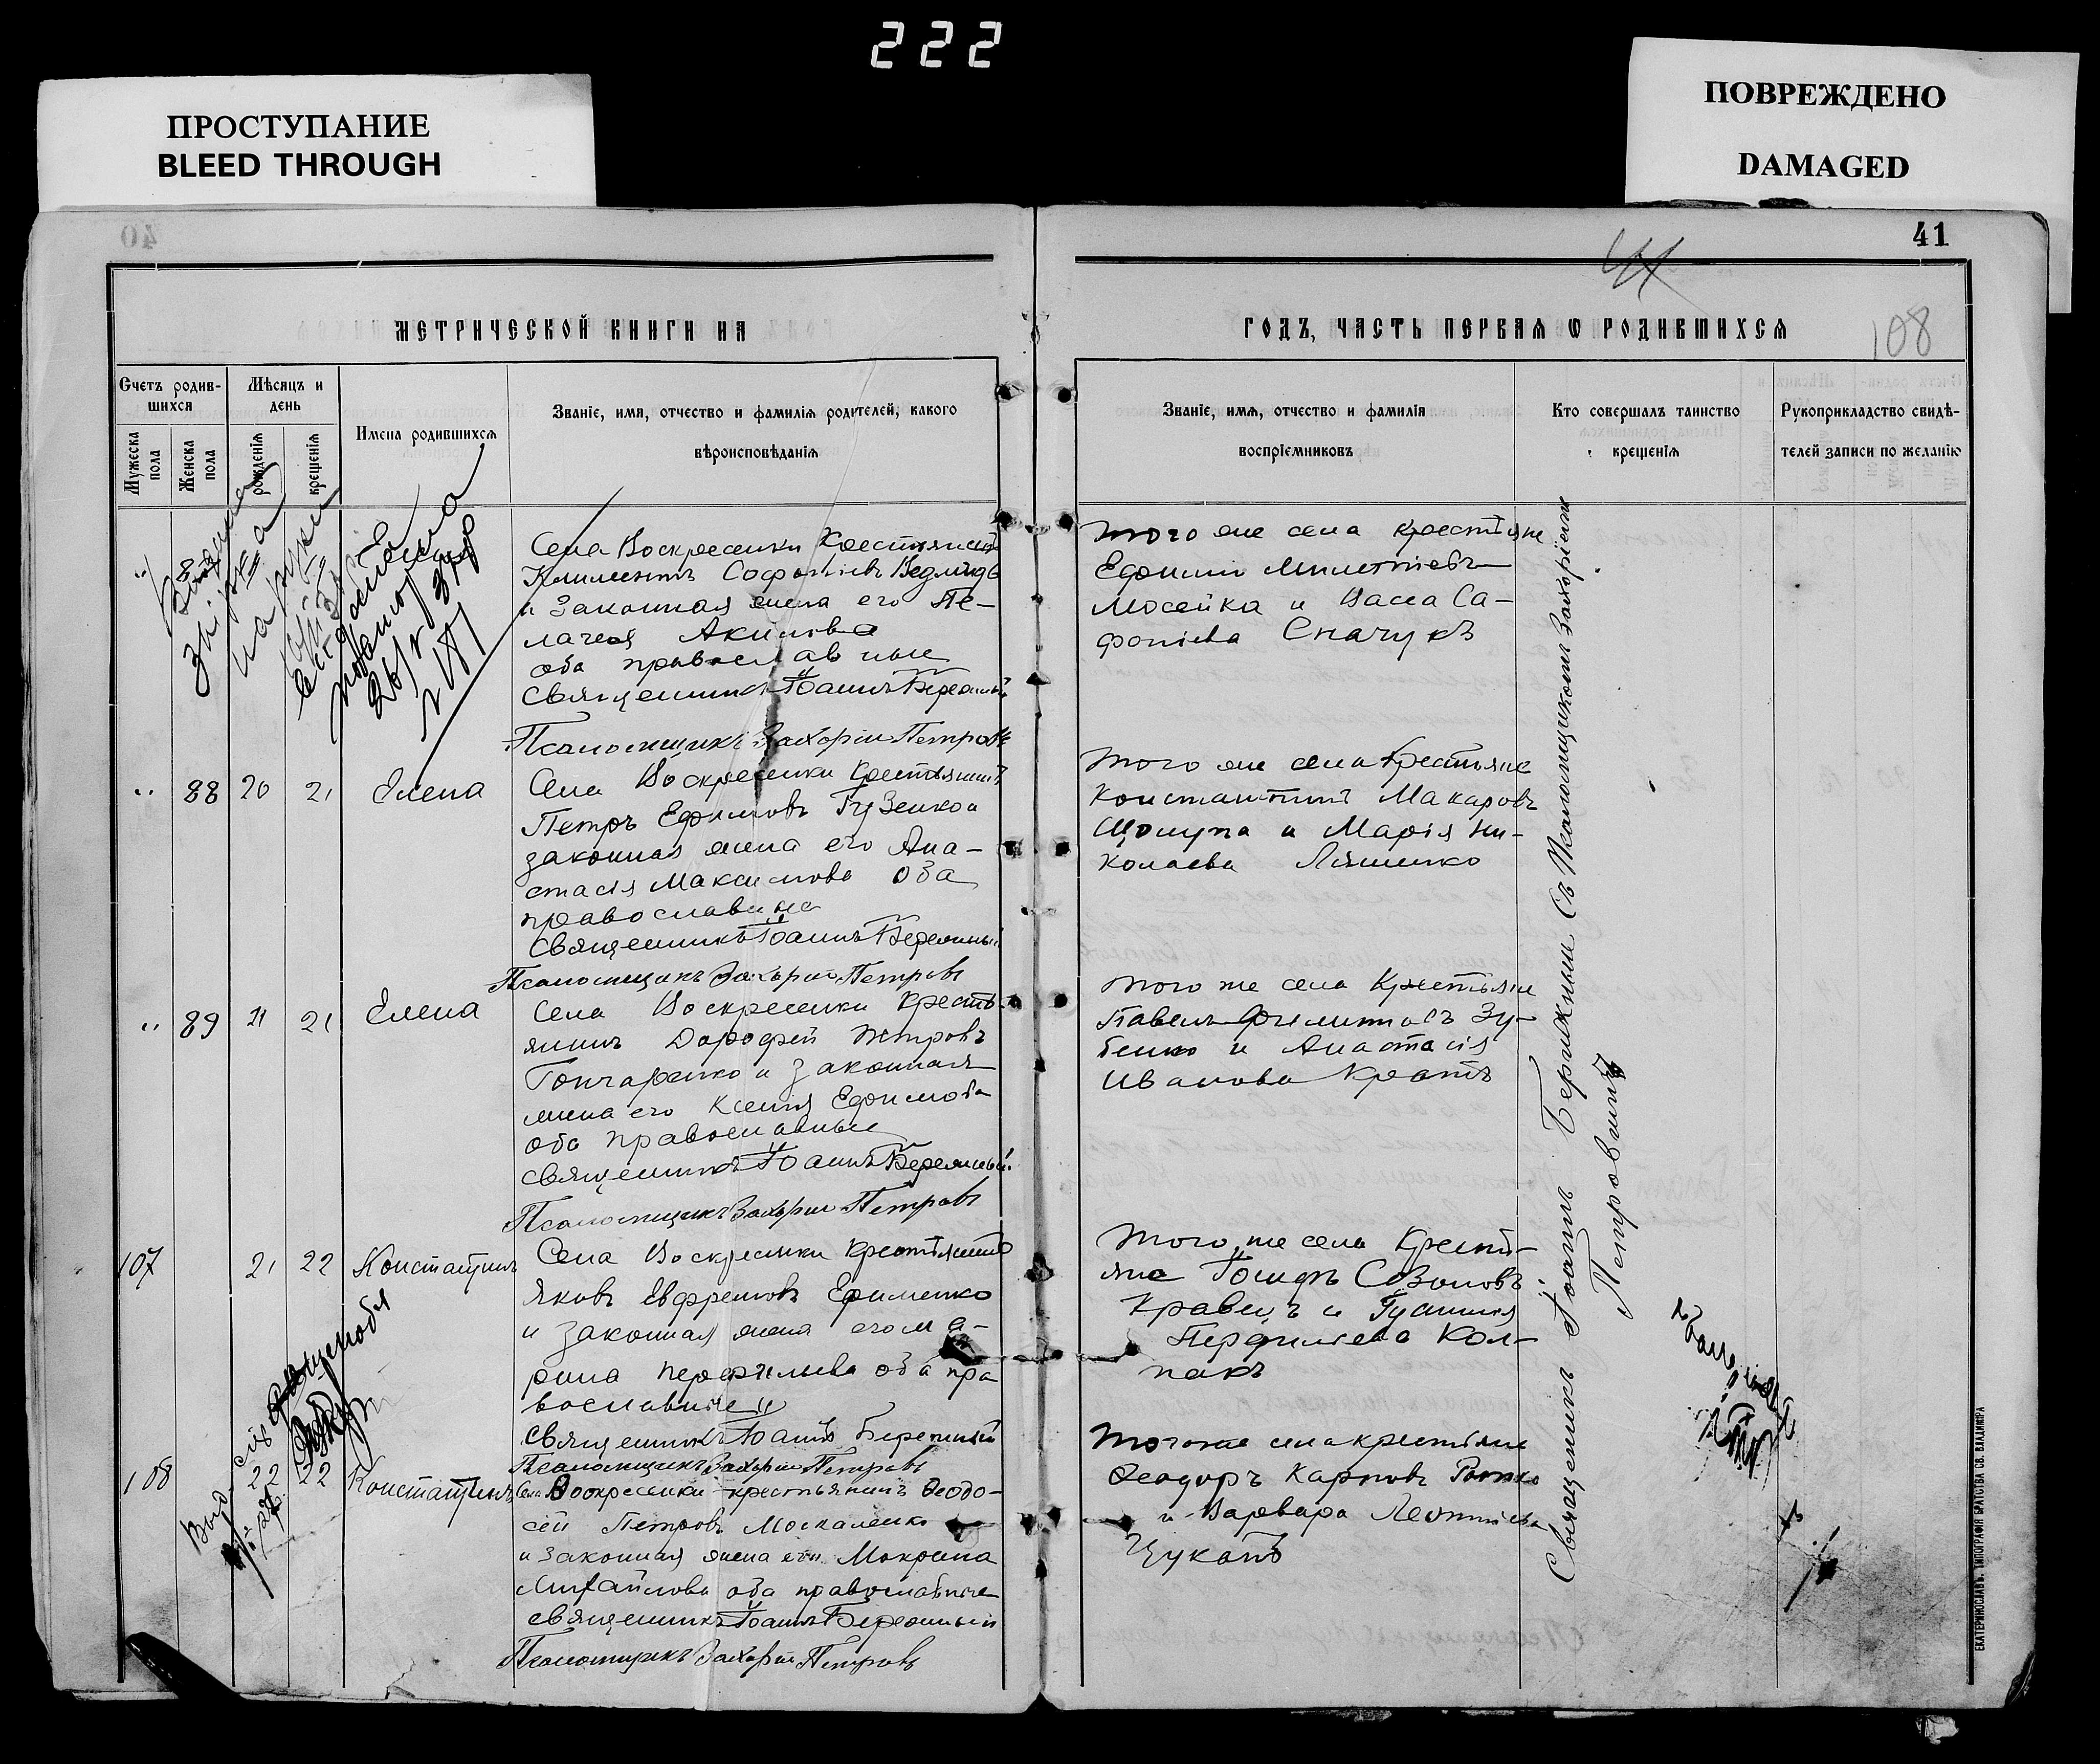 222
ПРОСТУПАНИЕ
BLEED THROUGH
ПОВРЕЖДЕНО
DAMAGED
40
41
108
МЕТРИЧЕСКОЙ КНИГИ НА
ГОДЪ, ЧАСТЬ ПЕРВАЯ Ѡ РОДИВШИХСЯ
Счетъ родив-
шихся
Мужеска
пола
Женска
пола
Мѣсяцъ и
день
рожденія
крещенія
Имена родившихся
Званіе, имя, отчество и фамилія родителей, какого
вѣроисповѣданія
Званіе, имя, отчество и фамилія
воспріемниковъ
Кто совершалъ таинство
крещенія
Рукоприкладство свидѣ-
телей записи по желанію
Села Воскресенки Крестьянинъ
Климентъ Софоніевъ
и законная жена его Пе-
лагея Акимова
оба православные
Священникъ Іоаннъ Бережный
Псаломщикъ Захарій Петровъ
Того же села крестьяне
Ефимъ Милетіевъ
Мосейка и Васса Са-
фоніева
88 20 21 Елена
Села Воскресенки Крестьянинъ
Петръ Ефимовъ Гузенко и
законная жена его Ана-
стасія Максимова оба
православные
Священникъ Іоаннъ Бережный
Псаломщикъ Захарій Петровъ
Того же села Крестьяне
Константинъ Макаровъ
Щолупа и Марія Ни-
колаева Ляшенко
89 21 21 Елена
Села Воскресенки Кресть-
янинъ Дорофей Петровъ
Гончаренко и законная
жена его Ксенія Ефимова
оба православные
Священникъ Іоаннъ Бережный
Псаломщикъ Захарій Петровъ
Того же села Крестьяне
Павелъ Филиповъ Зу-
бенко и Анастасія
Иванова
107 21 22 Константинъ
Села Воскресенки Крестьянинъ
Яковъ Евфремовъ Ефименко
и законная жена его Ма-
рина Перфильева оба пра
вославные
Священникъ Іоаннъ Бережный
Псаломщикъ Захарій Петровъ
Того же села Кресть-
яне Іосифъ Созоновъ
Кравецъ и
Перфильева Кол-
пакъ
108 22 22 Константинъ
Села Воскресенки крестьянинъ Феодо-
сей Петровъ Москаленко
и законная жена его Мокрина
Михайлова оба православные
Священникъ Іоаннъ Бережный
Псаломщикъ Захарій Петровъ
Того же села крестьяне
Феодоръ Карповъ
и Варвара Леонтіева
Цукатъ
Священникъ Іоаннъ Бережный Съ Псаломщикомъ Захаріемъ
Петровымъ
ЕКАТЕРИНОСЛАВЪ. ТИПОГРАФІЯ БРАТСТВА СВ. ВЛАДИМІРА